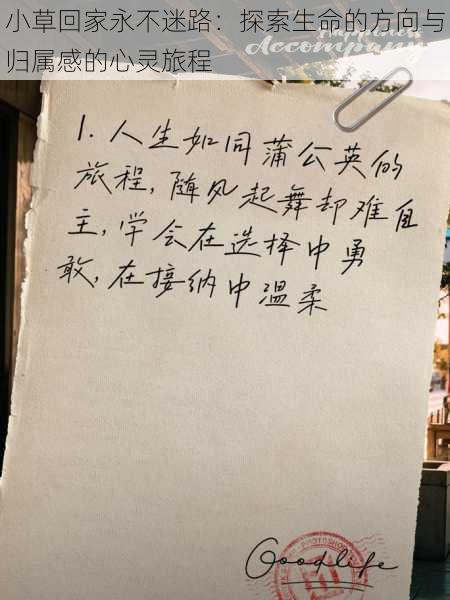 小草回家永不迷路：探索生命的方向与
归属感的心灵旅程
Happiness
Accompany
1. 人生如同蒲公英的
旅程,随风起舞却难自
主,学会在选择中勇
敢,在接纳中温柔
Goodlife